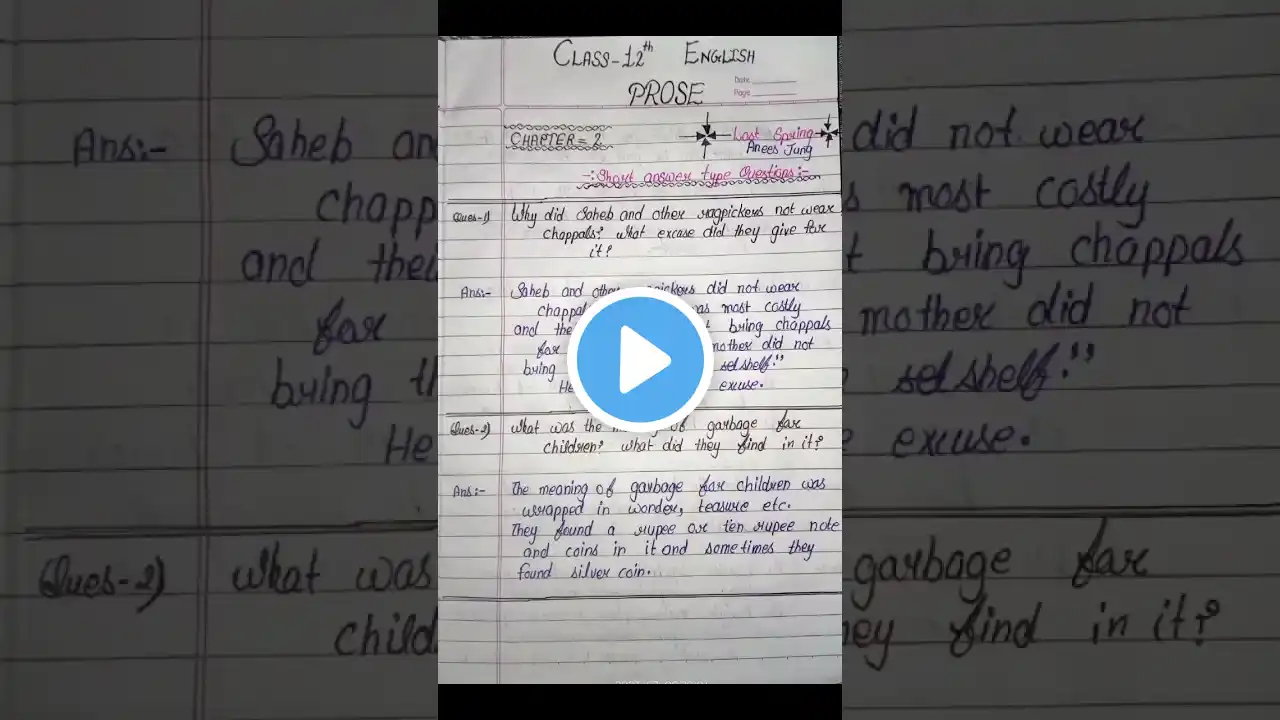 CLASS-12th ENGLISH
PROSE
Date
Page
CHAPTER = 2
Lost Spring
Anees Jung
-:Short answer type Questions:-
Ques-1) Why did Saheb and other ragpickers not wear
chappals? What excuse did they give for
it?
Ans:- Saheb and other ragpickers did not wear
chappal as most costly
and the bring chappals
for mother did not
bring shelf."
He excuse.
Ques-2) What was the of garbage for
children? What did they find in it?
Ans:- The meaning of garbage for children was
wrapped in wonder, teasure etc.
They found a rupee or ten rupee note
and coins in it and sometimes they
found silver coin.